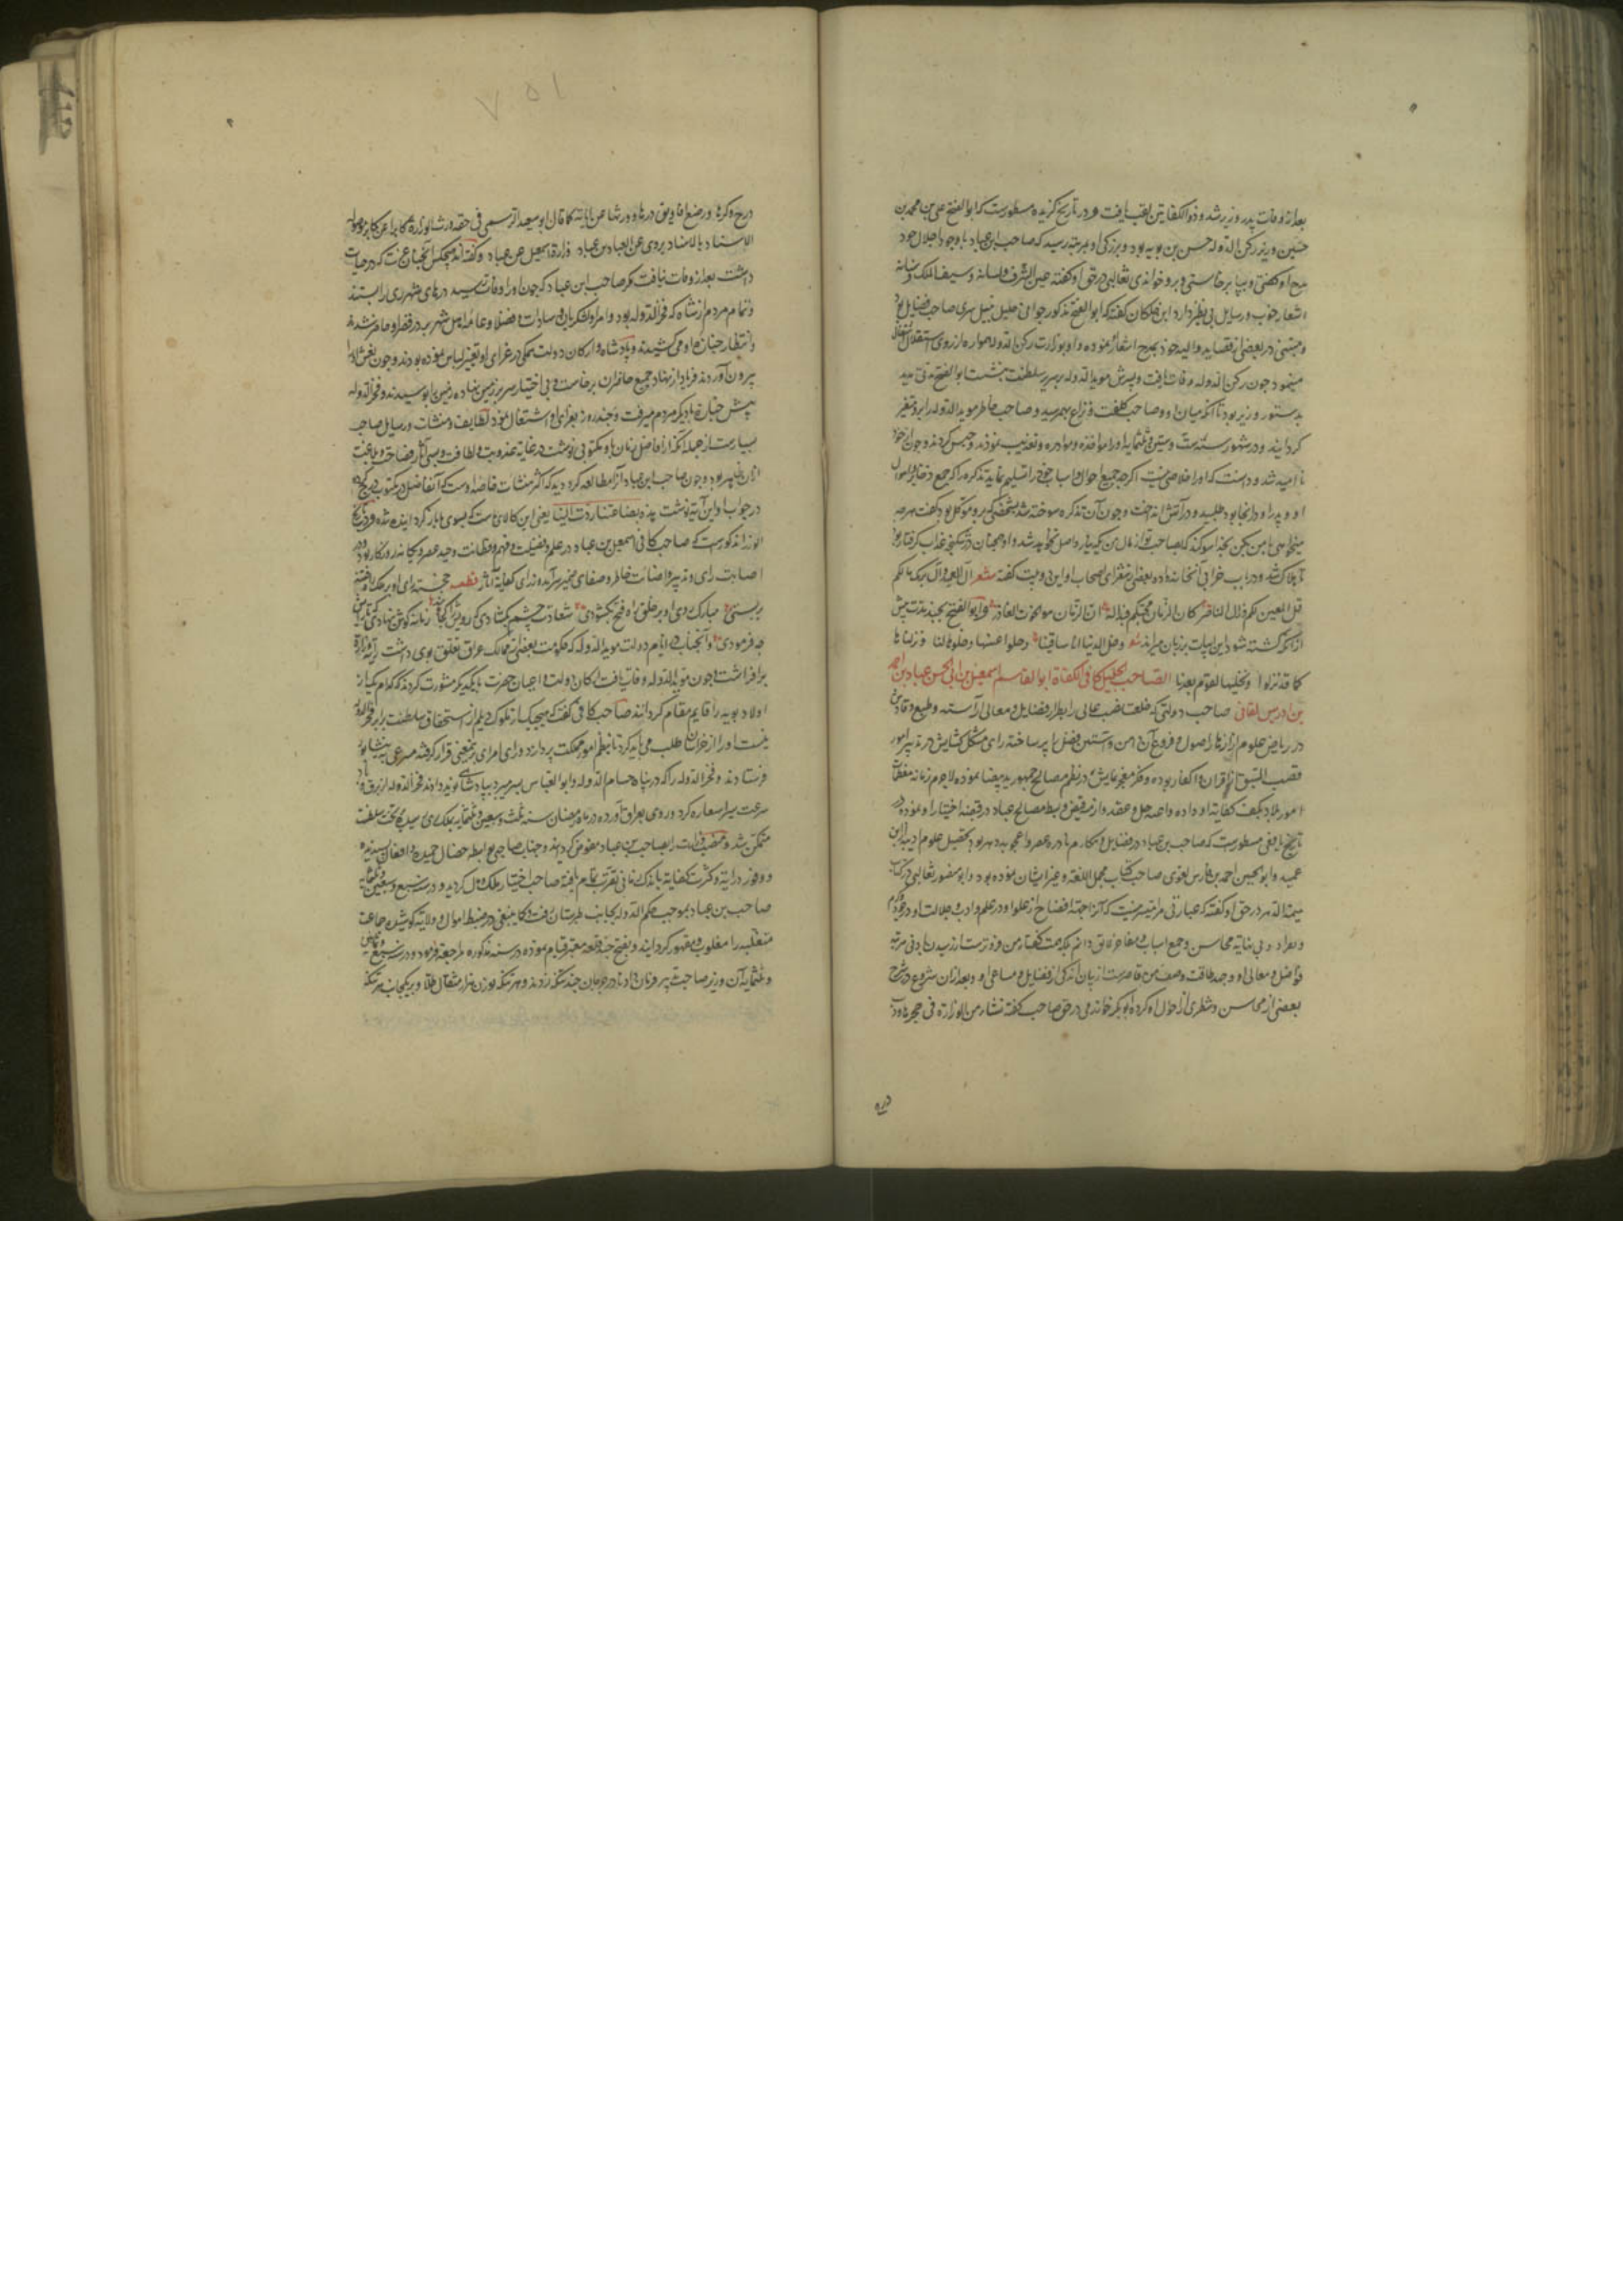 بعد از وفات پدر وزیر شد و ذو الکفایتین لقب یافت و در تاریخ گزیده مسطورست که ابو الفتح علی بن محمد بن
حسین وزیر رکن الدوله حسن بن بویه بود و بزرگی او بمرتبه رسید که صاحب ابن عباد با وجود اجلال خود
مدح او گفتی و بپا برخاستی و برو خواندی ثعالبی در حق او گفته عین الشرف و لسانه و سیف الملک و سنانه
اشعار خوب و رسایل بی نظیر دارد ابن خلکان گفته که ابو الفتح مذکور جوانی جلیل نبیل سری صاحب فضایل بود
و متنبی در بعضی از قصاید والیه خود بمدح اشعار نموده و او بوزارت رکن الدوله همواره از روی استقلال اشتغال
مینمود چون رکن الدوله وفات یافت و پسرش موید الدوله بر سریر سلطنت بنشست ابو الفتح مدتی مدید
بدستور وزیر بود تا آنکه میان او و صاحب کلفت و نزاع بهم رسید و صاحب خاطر موید الدوله را برو متغیر
گردانید و در شهور سنه ست و ستین و ثلثمایه او را مواخذه و مصادره و تعذیب نمودند و حبس کردند و چون از خود
نا امید شد و دانست که او را خلاصی نیست اگر چه جمیع احوال و اسباب خود را تسلیم نماید تذکره را که جمع ذخایر و اموال
او و پدر او در انجا بود طلبید و در آتش انداخت و چون آن تذکره سوخته شد بشخصی که برو موکل بود گفت هر چه
میخواهی با من بکن بخدا سوگند که بصاحب تو از مال من یک دینار واصل نخواهد شد و او همچنان در شکنجه عذاب گرفتار بود
تا هلاک شد و در باب خرابی آنخانه‌داده بعضی از شعرای اصحاب او این دو بیت گفته شعر آل العمید و آل برمک مالکم
قل المعین لکم و ذل الناصر کان الزمان یحبکم فبدا له ان الزمان هو الخؤن الغادر و ابو الفتح بچند مدت پیش
از آنکه کشته شود این ابیات بر زبان میراند شعر دخل الدنیا اناس قبلنا رحلوا عنها و خلوها لنا و نزلناها
کما قد نزلوا و نخلیها لقوم بعدنا الصاحب الجلیل کافی الکفاة ابو القاسم اسمعیل بن ابی الحسن عباد بن احمد
بن ادریس الطالقانی صاحب دولتی که خلعت منصب عالی را بطراز فضایل و معالی آراسته و طبع وقادش
در ریاض علوم از ازهار اصول و فروع آن دامن و آستین فضل را پر ساخته رای مشکل کشایش در تدبیر امور
قصب السبق از اقران و اکفا ربوده و فکر معجز نمایش در نظم مصالح جمهور ید بیضا نموده لاجرم زمانه مفتاح
امور بلاد بکف کفایه او داده و اعنه حل و عقد و ازمه قبض و بسط مصالح عباد در قبضه اختیار او نموده در
تاریخ یافعی مسطورست که صاحب بن عباد در فضایل و مکارم نادره عصر و اعجوبه دهر بود تحصیل علوم ادبیه از ابن
عمید و ابو الحسین احمد بن فارس لغوی صاحب کتاب مجمل اللغه و غیر ایشان نموده بود و ابو منصور ثعالبی در کتاب
یتیمة الدهر در حق او گفته که عبارتی مرا میسر نیست که آنرا جهة افصاح از علو او در علم و ادب و جلالت او در جود و کرم
و تفرد او بغایه محاسن و جمع اشتات مفاخر لایق دانم که همت گفتار من فروترست از رسیدن بادنی مرتبه
فواضل و معالی او و جهد طاقت وصف من قاصرست از بیان اندکی از فضایل و مساعی او و بعد از ان شروع در شرح
بعضی از محاسن و شطری از احوال او کرده ابو بکر خوارزمی در حق صاحب گفته نشأ من الوزارة فی حجرها و دب
و درج
درج و کرها و رضع افاویق درها و ورثها عن آبائه کما قال ابو سعید الرستمی فی حقه ورث الوزارة کابرا عن کابر موصولة
الاسناد بالاسناد یروی عن العباس عباد وزارة اسمعیل عن عباد و گفته‌اند هیچکس آنچنان عزت که در حیات
داشت بعد از وفات نیافت مگر صاحب ابن عباد که چون او را وفات رسید درهای شهر ری را بستند
و تمام مردم از شاه که فخر الدوله بود و امرا و لشکریان و سادات و فضلا و عامه اهل شهر بر در قصر او حاضر شدند
و انتظار جنازه او می کشیدند و پادشاه و ارکان دولت همگی در عزای او تغییر لباس نموده بودند و چون نعش او را
بیرون آوردند فریاد از نهاد جمیع حاضران برخاست و بی اختیار سر بر زمین نهاده زمین را بوسیدند و فخر الدوله
پیش جنازه با دیگر مردم میرفت و چند روز بعزای او اشتغال نمود لطایف و منشآت و رسایل صاحب
بسیارست از جمله آنکه از افاضل زمان باو مکتوبی نوشت در غایة عذوبت و لطافت و بسی آثار فصاحت و بلاغت
از ان ظاهر بود و چون صاحب ابن عباد آنرا مطالعه کرد دید که اکثر منشآت خاصه اوست که آنفاضل در مکتوب درج کرده
در جواب او این آیه نوشت هذه بضاعتنا ردت الینا یعنی این کالای ماست که بسوی ما باز گردانیده شده و در تاریخ
الوزرا مذکورست که صاحب کافی اسمعیل بن عباد در علم و فضیلت و فهم و فطانت وحید عصر و یگانه روزگار بود و در
اصابت رای و تدبیر و اضائت خاطر و صفای ضمیر سرآمد وزرای کفایة آثار قطعه خجسته رای او بر ملک راه فتنه
ببستی مبارک روی او بر خلق راه فتح بکشودی سعادت چشم بگشادی که رویش کجا بیند زمانه گوش بنهادی که تا رایش
چه فرمودی و آنجناب در ایام دولت موید الدوله که حکومت بعضی از ممالک عراق تعلق بوی داشت رایة وزارة
برافراشت و چون موید الدوله وفات یافت ارکان دولت و اعیان حضرت با یکدیگر مشورت کردند که کدام یک از
اولاد بویه را قایم مقام گردانند صاحب کافی گفت که هیچیک از ملوک دیلم از استحقاق سلطنت برابر فخر الدوله
نیست او را از خراسان طلب می باید کرد تا بنظم امور مملکت پردازد و رای امرای بر معنی قرار گرفته مسرعی به نیشابور
فرستادند و فخر الدوله را که در پناه حسام الدوله و ابو العباس بسر میبرد بپادشاهی نوید دادند فخر الدوله از برق و باد
سرعت سیر استعاره کرد و روی بعراق آورده در ماه رمضان سنه ثلث و سبعین و ثلثمایه بملک ری رسید بر تخت سلطنت
متمکن شد و منصب وزارت را بصاحب بن عباد مفوض گردانید و جناب صاحبی بواسطه خصال حمیده و افعال پسندیده
و وفور درایة و کثرت کفایة باندک زمانی تقرب تمام یافته صاحب اختیار ملک و مال گردید و در سنه سبع و سبعین و ثلثمایه
صاحب بن عباد بموجب حکم الدوله بجانب طبرستان رفت و کما ینبغی در ضبط اموال و ولایة کوشیده جماعت
متغلبه را مغلوب و مقهور گردانید و بفتح چند قلعه معتبر قیام نموده در سنه مذکوره مراجعه فرمود و در سنه تسع و سبعین
و ثلثمایه آن وزیر صاحب تدبیر فرمان داد تا در جرجان چند سکه زدند و هر سکه بوزن هزار مثقال طلا و بر یکجانب هر سکه